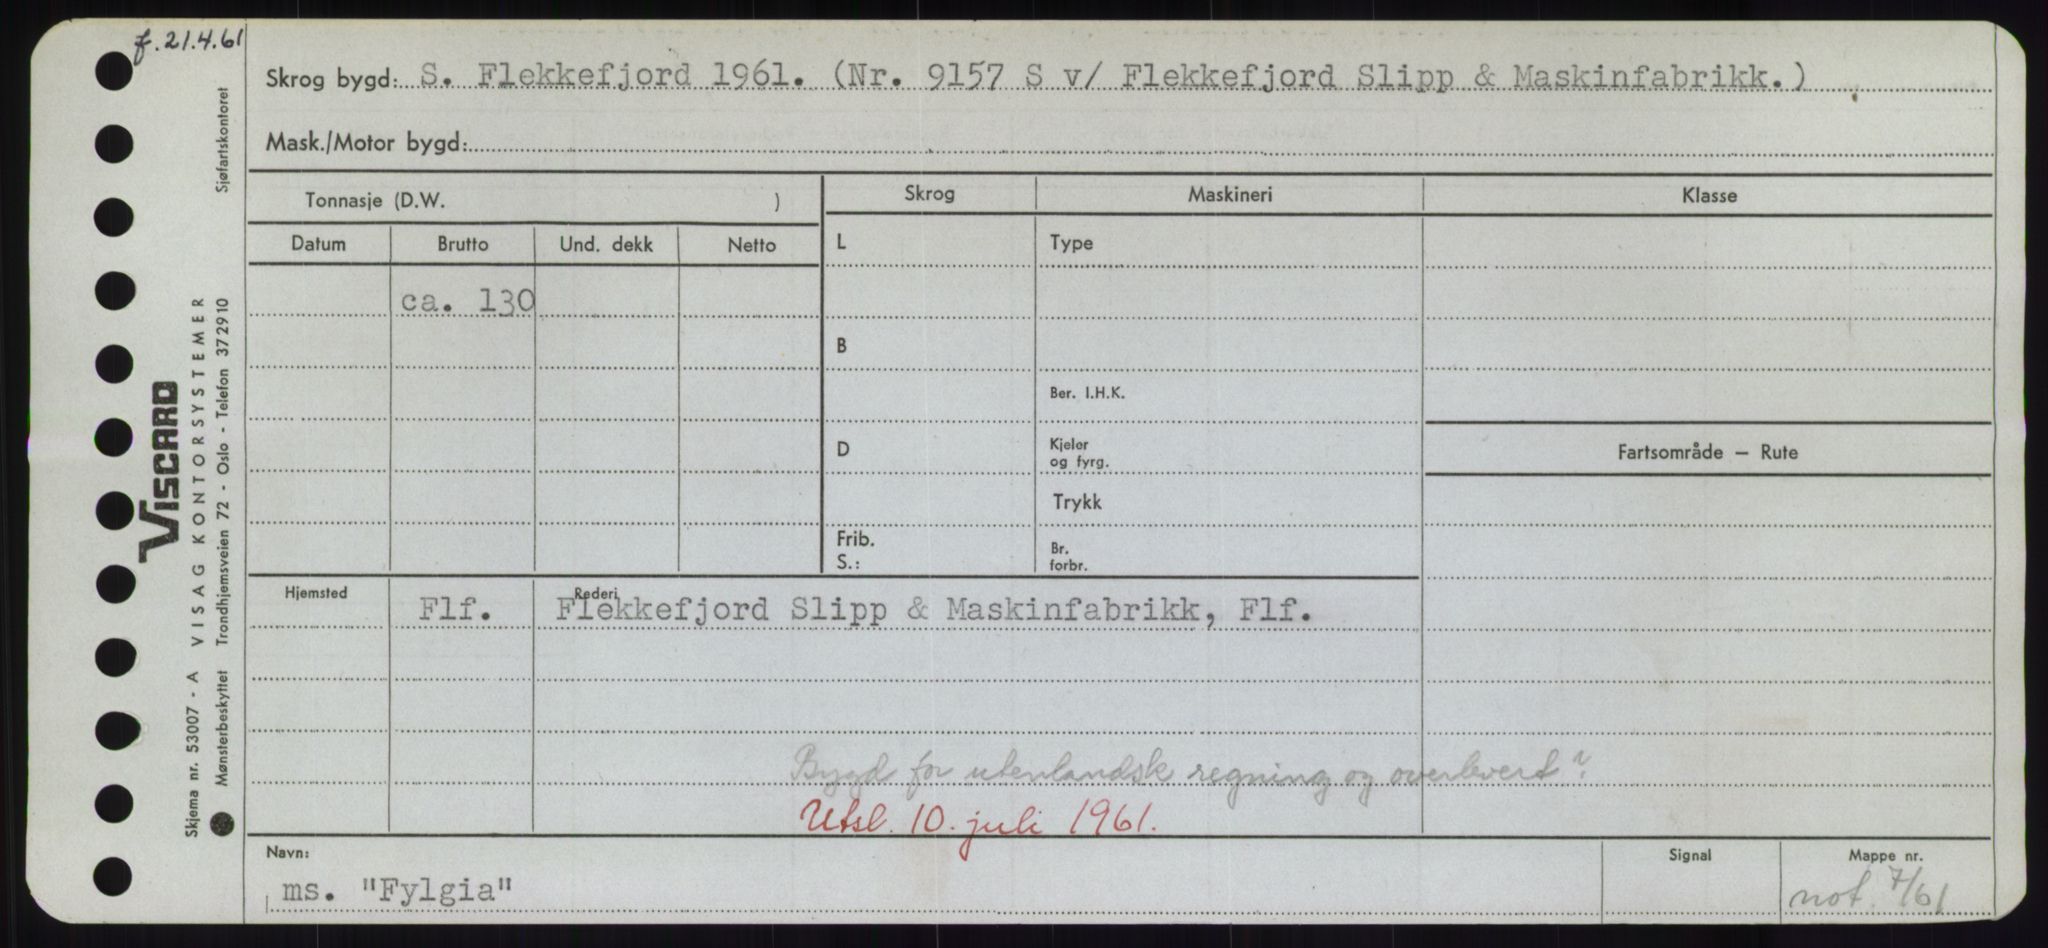 f. 21.4.61
Skrog bygd: S. Flekkefjord 1961. (Nr. 9157 S v/ Flekkefjord Slipp & Maskinfabrikk.)
Mask./Motor bygd:
Tonnasje (D.W. )
Skrog
Maskineri
Klasse
Datum
Brutto
Und. dekk
Netto
L
Type
ca. 130
B
Ber. I.H.K.
D
Kjeler
og fyrg.
Fartsområde — Rute
Trykk
Frib.
S.:
Br.
forbr.
Hjemsted
Rederi
Flf.
Flekkefjord Slipp & Maskinfabrikk, Flf.
Bygd for utenlandsk regning og overlevert?
Utsl. 10. juli 1961.
Navn:
Signal
Mappe nr.
ms. "Fylgia"
not. 7/61
Skjema nr. 53007 - A VISAG KONTORSYSTEMER
Mønsterbeskyttet Trondhjemsveien 72 - Oslo - Telefon 372910 Sjøfartskontoret
VISCARD